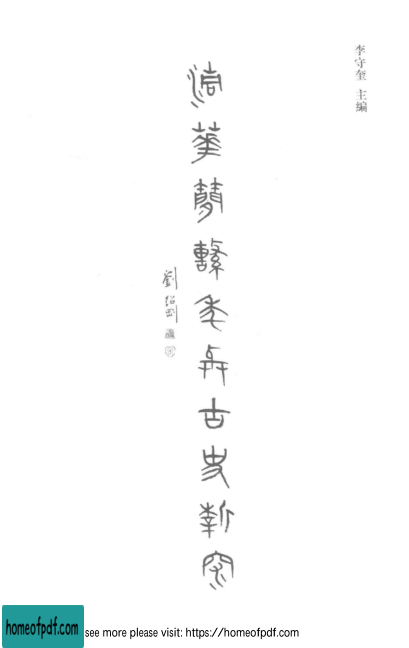 李守奎 主编
清華簡繫年與古史新探
劉紹剛
homeofpdf.com
see more please visit: https://homeofpdf.com